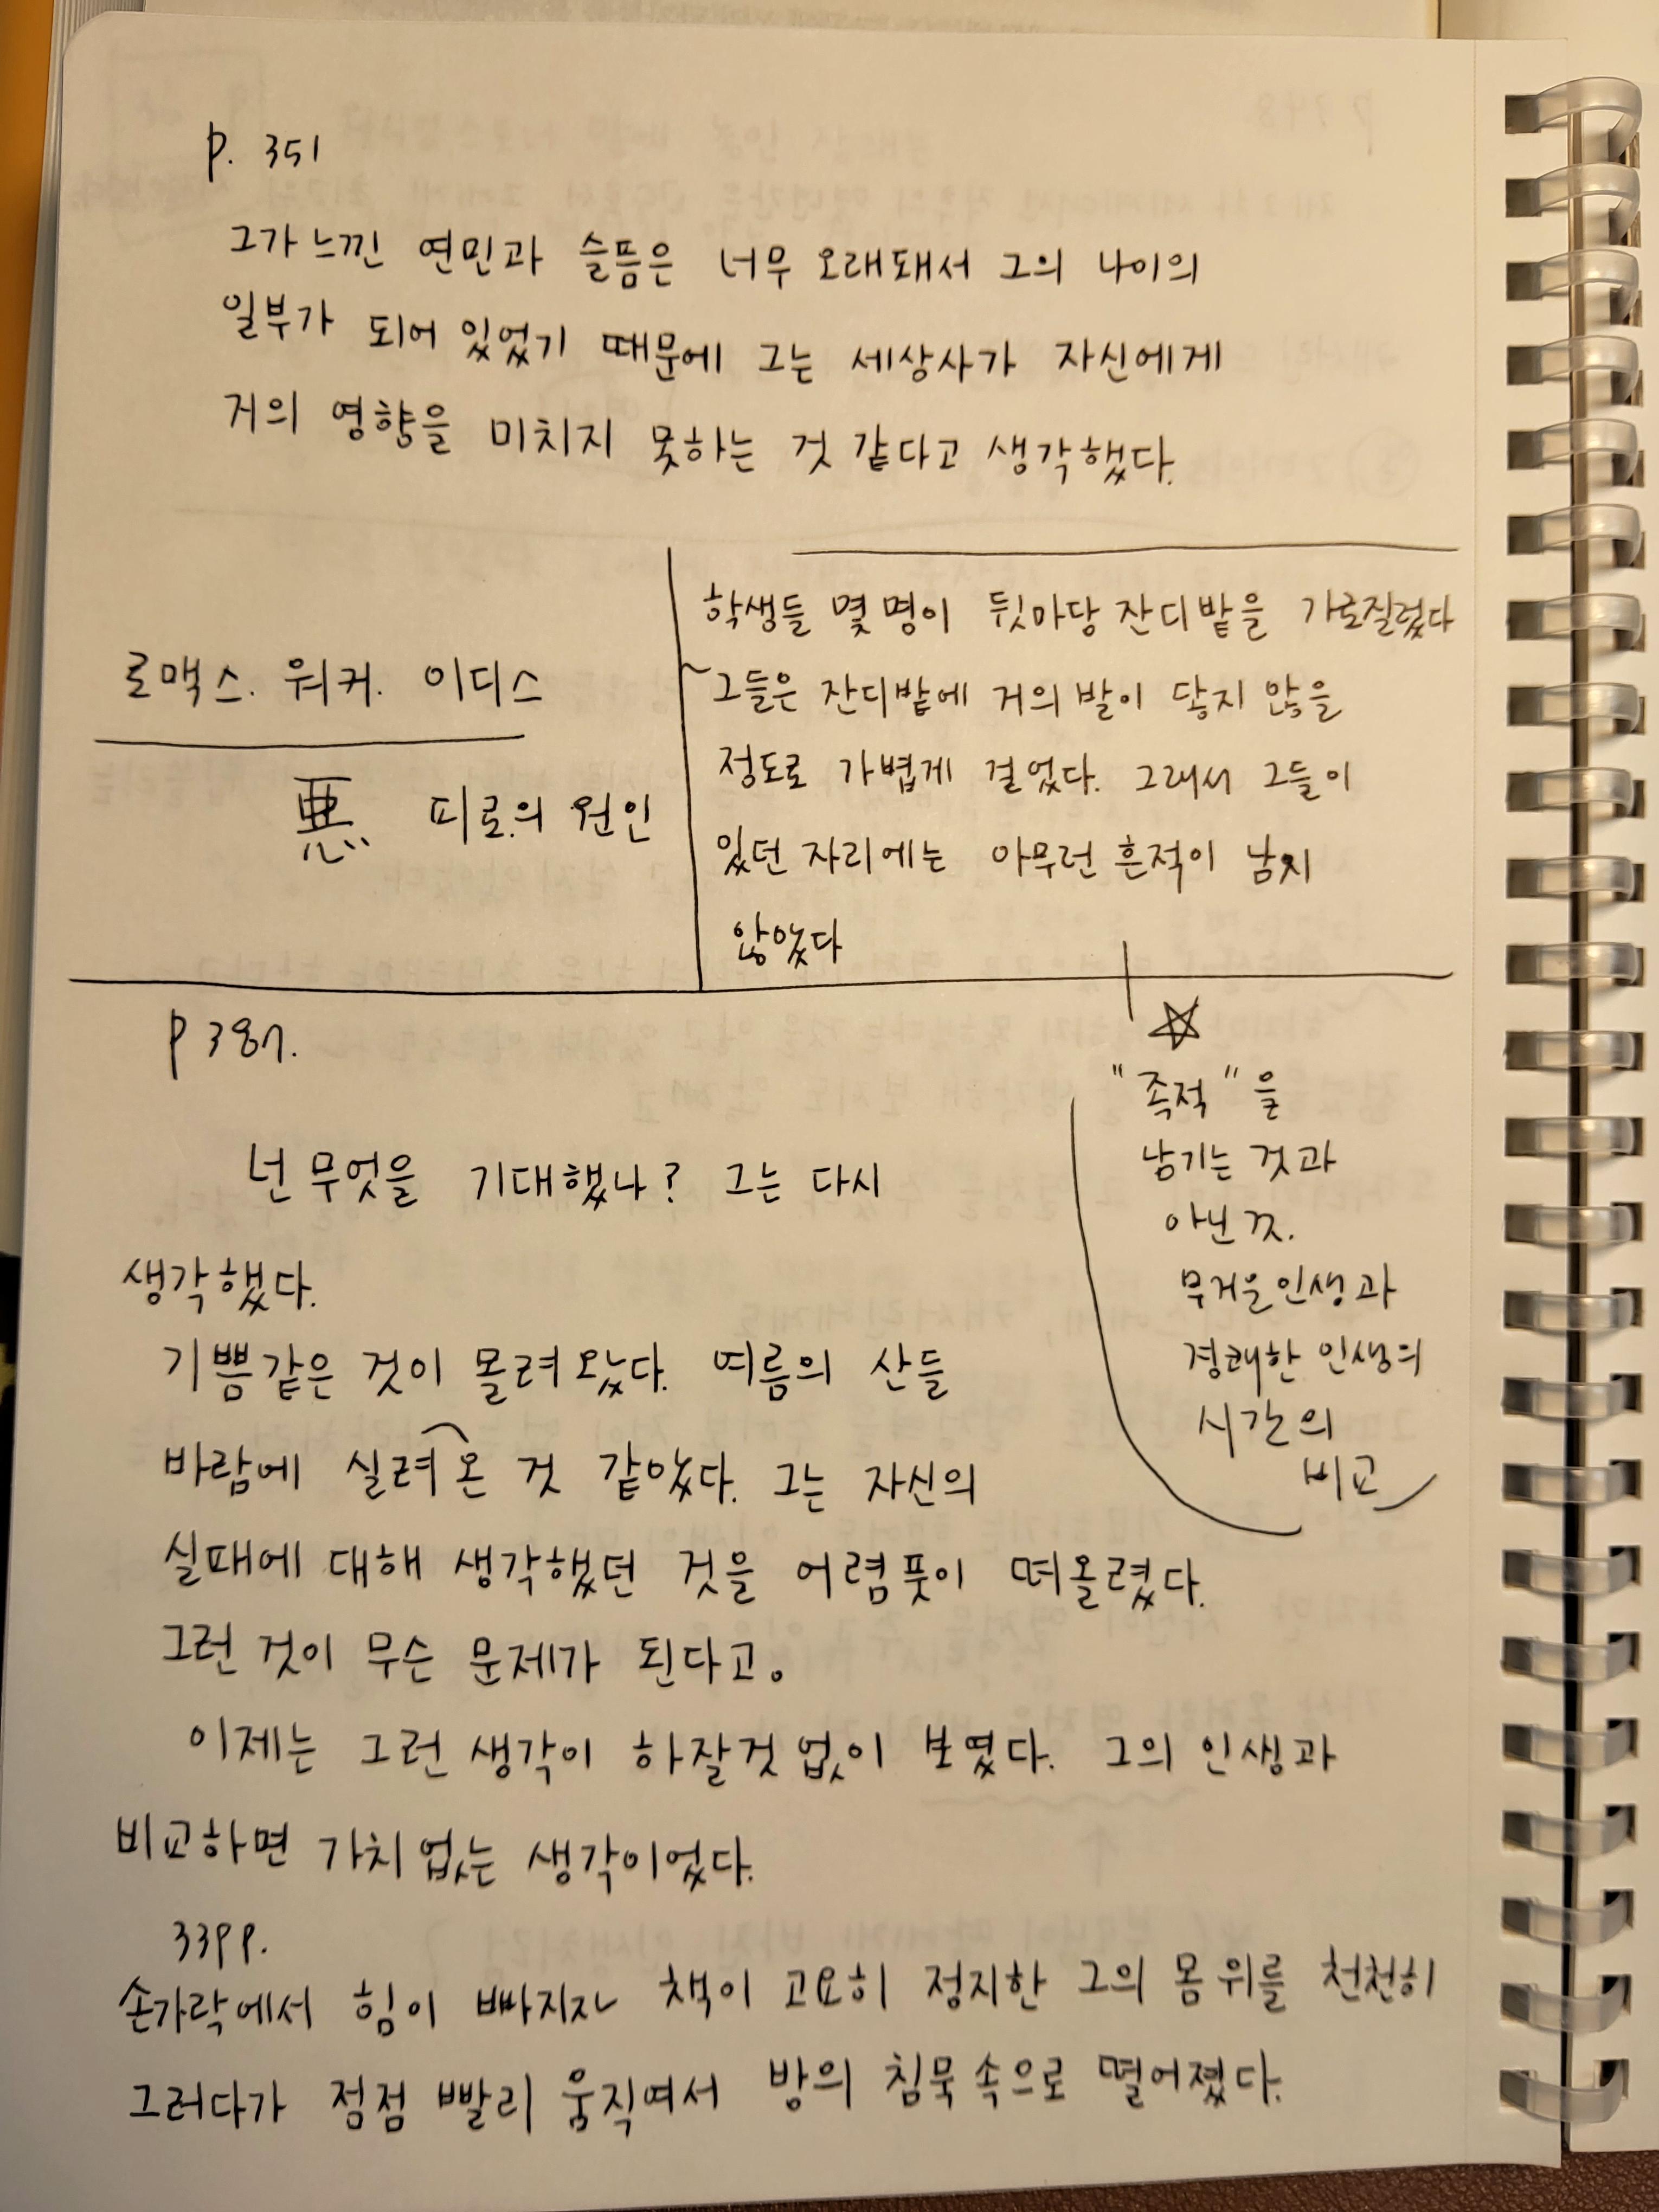 p. 351
그가 느낀 연민과 슬픔은 너무 오래돼서 그의 나이의
일부가 되어 있었기 때문에 그는 세상사가 자신에게
거의 영향을 미치지 못하는 것 같다고 생각했다.
로맥스. 워커. 이디스
悪 피로의 원인
학생들 몇 명이 뒷마당 잔디밭을 가로질렀다
~그들은 잔디밭에 거의 발이 닿지 않을
정도로 가볍게 걸었다. 그래서 그들이
있던 자리에는 아무런 흔적이 남지
않았다
p 387.
넌 무엇을 기대했나? 그는 다시
생각했다.
기쁨같은 것이 몰려왔다. 여름의 산들
바람에 실려 온 것 같았다. 그는 자신의
실패에 대해 생각했던 것을 어렴풋이 떠올렸다.
그런 것이 무슨 문제가 된다고.
이제는 그런 생각이 하잘것 없이 보였다. 그의 인생과
비교하면 가치 없는 생각이었다.
☆
"족적"을
남기는 것과
아닌 것.
무거운 인생과
경쾌한 인생의
시간의
비교
손가락에서 힘이 빠지자 책이 고요히 정지한 그의 몸 위를 천천히
그러다가 점점 빨리 움직여서 방의 침묵 속으로 떨어졌다.